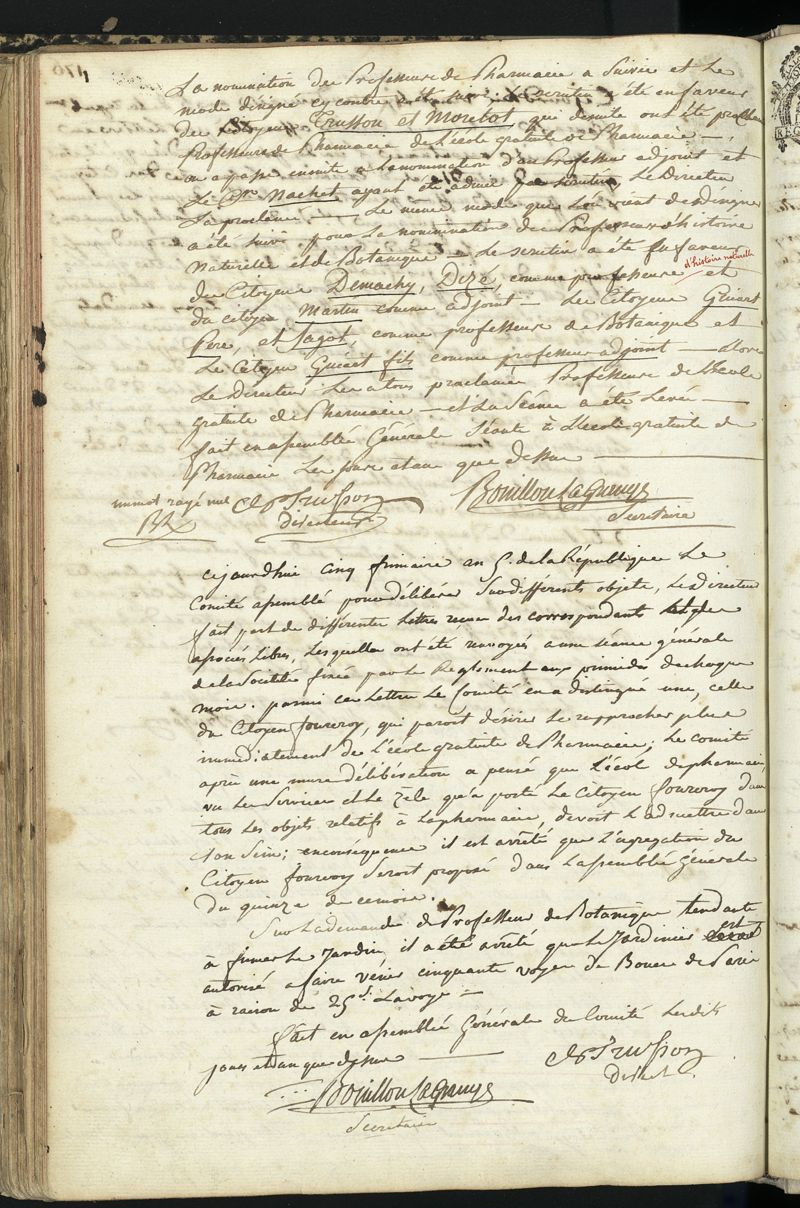 La nomination des Professeurs de Pharmacie a Suivie et Le
mode désigné cy contre Le Scrutin a été en faveur
des Citoyens Trusson et Morelot, qui desuite ont été proclamés
Professeurs de Pharmacie de L'école gratuite de Pharmacie —,
on a passé ensuite a La nomination d'un Professeur adjoint et
Le Cen Nachet ayant été admis Le Directeur
L'a proclamé —, Le même mode que L'on vient de désigner
a été Suivi pour La nomination des Professeurs d'histoire
Naturelle et de Botanique — Le scrutin a été en faveur
des Citoyens Demachy, Dizé, comme professeurs d'histoire naturelle et
du citoyen Martin comme adjoint — Les Citoyens Guiart
Pere, et Jagot, comme professeurs de Botanique et
Le Citoyen Guiart fils comme professeur adjoint — alors
Le Directeur Les a tous proclamés Professeurs de L'école
gratuite de Pharmacie — et La Séance a été Levée —
fait en assemblée Générale Séante à L'école gratuite de
Pharmacie Les jour et an que dessus —
un mot rayé nul
Trusson
Bouillon Lagrange
directeur
Secretaire
Cejourd'hui cinq frimaire an 5. de la République Le
Comité assemblé pour délibérer Sur différents objets, Le directeur
fait part de différentes Lettres reçues des correspondants
associés Libres, Lesquelles ont été renvoyés a une séance générale
de la Société fixée par le Reglement aux primidis de chaque
mois. parmi ces Lettres Le Comité en a distingué une, celle
du Citoyen fourcroy, qui paroit désirer se rapprocher plus
immédiatement de L'école gratuite de Pharmacie; Le comité
après une mure délibération a pensé que L'école de pharmacie,
vu Les Services et Le Zèle qu'a porté Le Citoyen fourcroy dans
tous Les objets relatifs à La pharmacie, devoit L'admettre dans
Son Sein; enconséquence il est arrêté que L'agregation du
Citoyen fourcroy Seroit proposé dans L'assemblée Générale
du quinze de ce mois.
Sur La demande de Professeur de Botanique tendante
à fumer Le Jardin, il a été arrêté que Le Jardinier est
autorisé a faire venir cinquante voyes de Boues de Paris
à raison de 25s. La voye —
fait en assemblée Générale du Comité Lesdits
jours et an que dessus —
Trusson
Direct.
Bouillon Lagrange
Secretaire